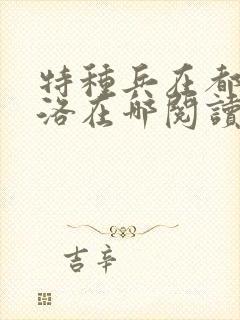 特種兵在都
洛在哪閱讀
吉辛